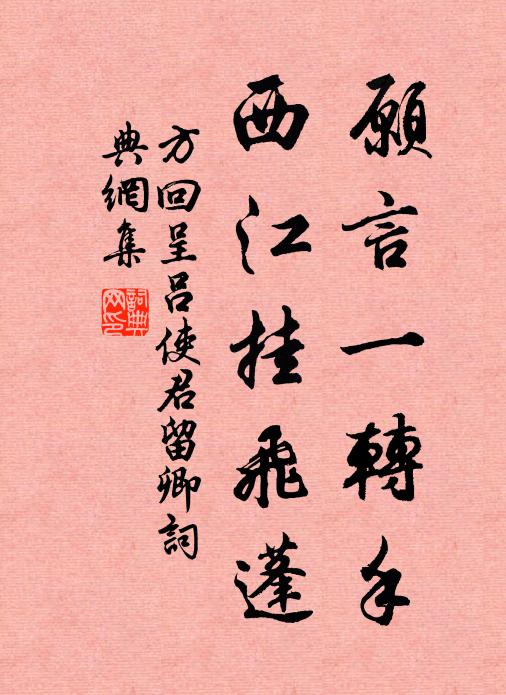 願言一轉手
西江挂飛蓬
方回呈呂使君留卿詞
典網集
詞典網印